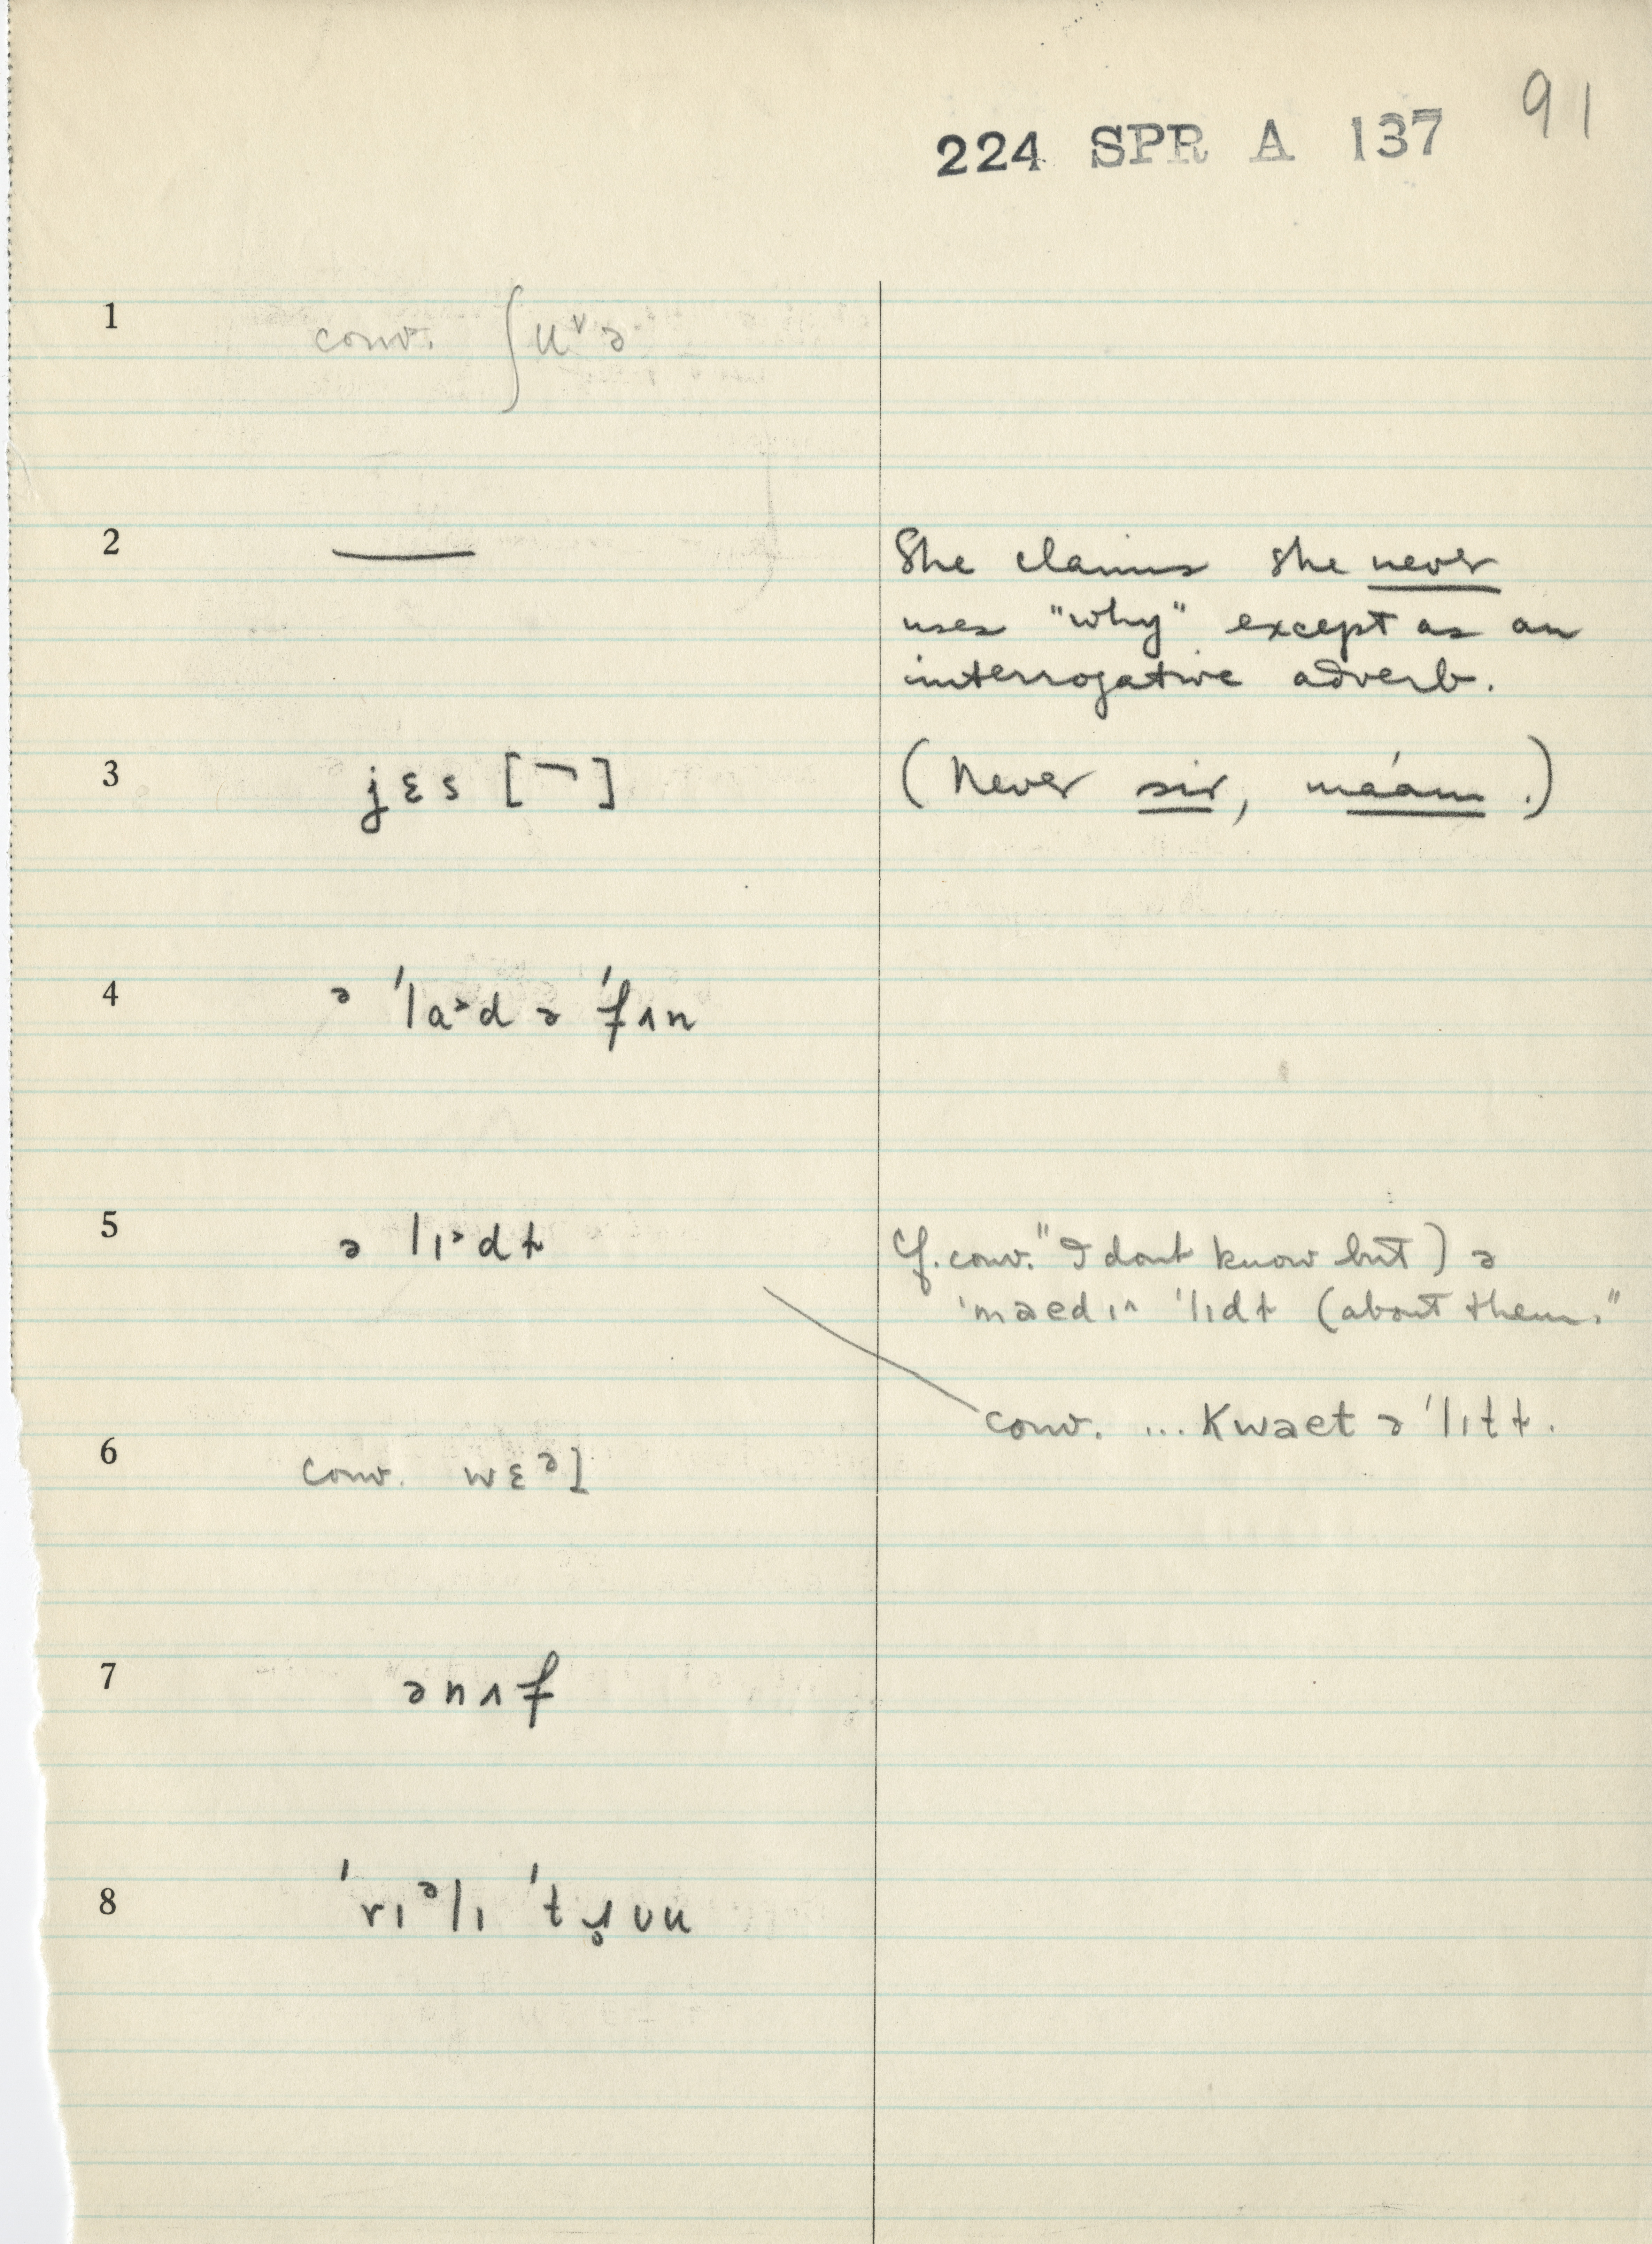 91
224 SPR A 137
1 conv. ʃu˅ə
2 —— She claims she never
uses "why" except as an
interrogative adverb.
3 jɛs [¬] (Never sir, ma'am.)
4 ə 'la˃d ə 'fʌn
5 ə lɪ˃dɫ Cf. conv. "I dont know but) ə
'maedɪ^ 'lɪdɫ (about them."
conv. ... Kwaet ə 'lɪtɫ.
6 conv. wɛᵊl
7 ənʌf
8 'rɪᵊlɪ 'tʃ̥ʊu